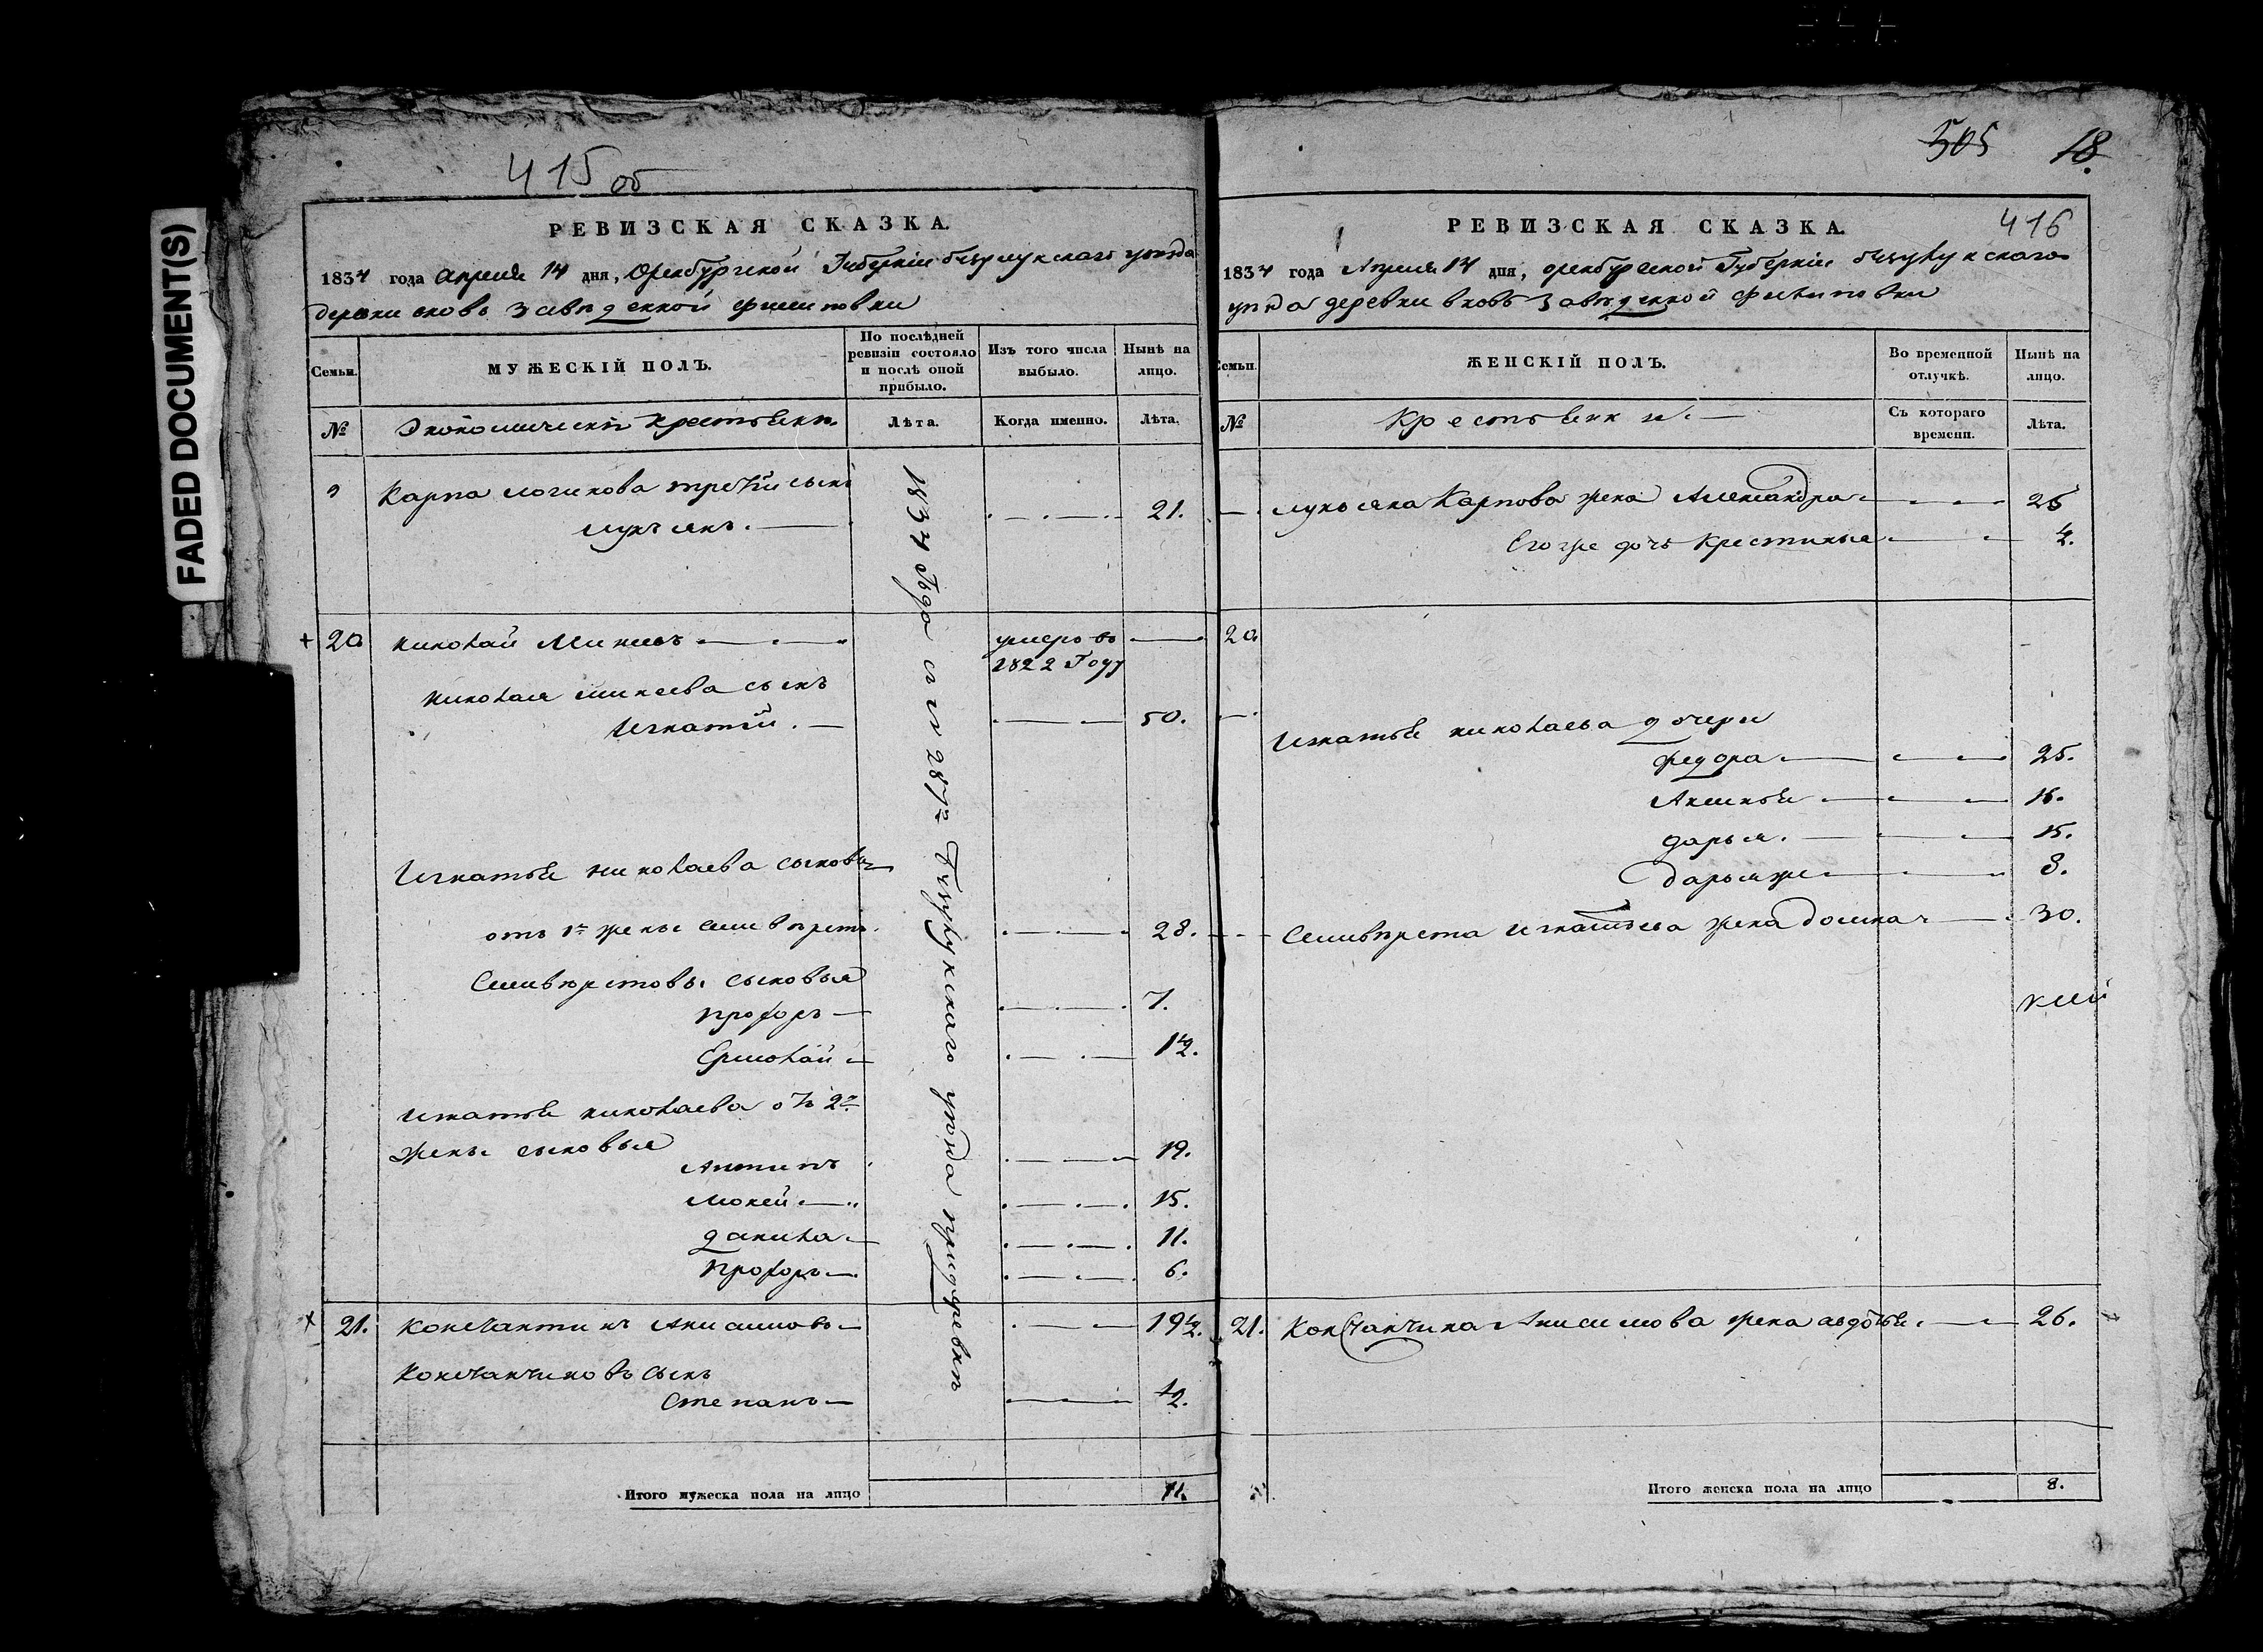 FADED DOCUMENT(S)
415 об
РЕВИЗСКАЯ СКАЗКА.
1834 года Апреля 14 дня, Оренбургской Губернии бузулукскаго уезда
деревни вновь заведенной филиповки
Семьи.
МУЖЕСКІЙ ПОЛЪ.
По послѣдней ревизіи состояло и послѣ оной прибыло.
Изъ того числа выбыло.
Нынѣ на лицо.
№
Экономически крестьяне.
Лѣта.
Когда именно.
Лѣта.
Карпа логинова третій сынъ
лукъянъ. 21.
20 николай Минеевъ умеръ въ
1822 Году
николая минеева сынъ
Игнатій. 50.
Игнатья николаева сыновья
отъ 1й жены 28.
сыновья
прохоръ 7.
Ермолай 1½.
Игнатья николаева отъ 2й
жены сыновья
Антипъ 19.
Мокей 15.
данила 11.
прохоръ 6.
21. Константинъ Анисимовъ 19½.
Константиновъ сынъ
Степанъ ½.
Итого мужеска пола на лицо 11.
1834 года
Бузулукскаго уезда
505 18.
416
РЕВИЗСКАЯ СКАЗКА.
1834 года Апреля 14 дня, оренбургской Губерніи бузулукскаго
уезда деревни вновь заведенной филиповки
Семьи.
ЖЕНСКІЙ ПОЛЪ.
Во временной отлучкѣ.
Нынѣ на лицо.
№
Крестьянки.
Съ котораго времени.
Лѣта.
лукьяна Карпова жена Александра 26
Его же дочь Крестинья 4.
20
Игнатья николаева дочери
федора 25.
Аксинья 16.
дарья. 15.
дарья же 8.
Игнатьева жена домна 30.
21. Константина Анисимова жена авдотья. 26.
Итого женска пола на лицо 8.